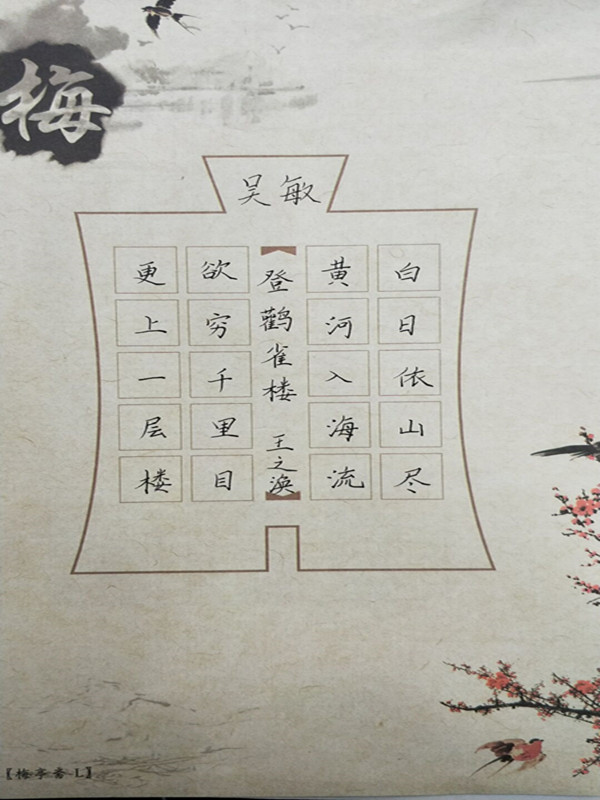 梅
吴敏
白日依山尽
黄河入海流
登鹳雀楼 王之涣
欲穷千里目
更上一层楼
【梅亭斋·L】